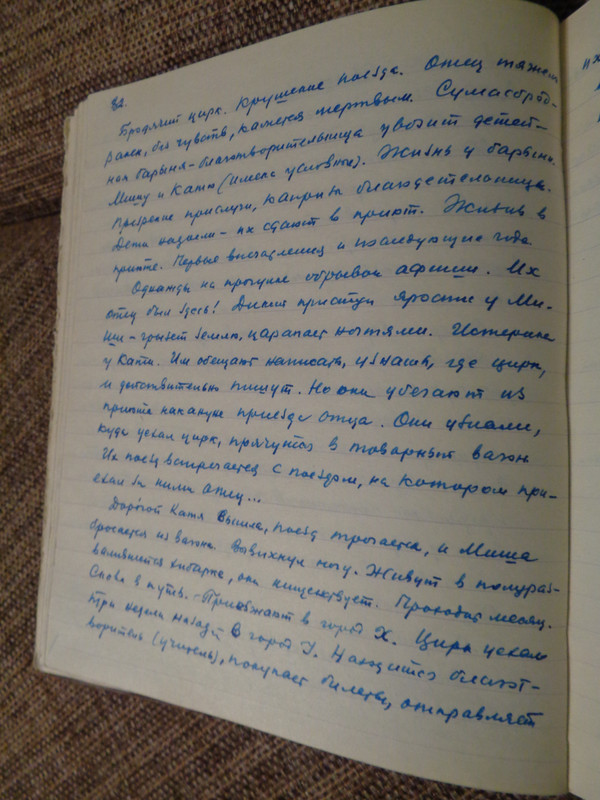 82.
Бродячий цирк. Крушение поезда. Отец тяжело
ранен, без чувств, кажется мертвым. Сумасброд-
ная барыня-благотворительница увозит детей –
Мишу и Катю (имена условные). Жизнь у барыни.
Презрение прислуги, капризы благодетельницы.
Дети надоели – их сдают в приют. Жизнь в
приюте. Первые впечатления и последующие года
Однажды на прогулке обрывок афиши. Их
отец был здесь! Дикий приступ ярости у Ми-
ши – грызет землю, царапает ногтями. Истерика
у Кати. Им обещают написать, узнать, где цирк,
и действительно пишут. Но они убегают из
приюта накануне приезда отца. Они узнали,
куда уехал цирк, прячутся в товарный вагон
Их поезд встречается с поездом, на котором при-
ехал за ними отец...
Дорогой Катя вышла, поезд трогается, и Миша
бросается из вагона. Вывихнул ногу. Живут в полураз-
валившейся хибарке, они нищенствуют. Проходит месяц.
Снова в путь. – Приезжают в город X. Цирк уехал
три недели назад в город У. Находится благот-
воритель (учитель), покупает билеты, отправляет
их